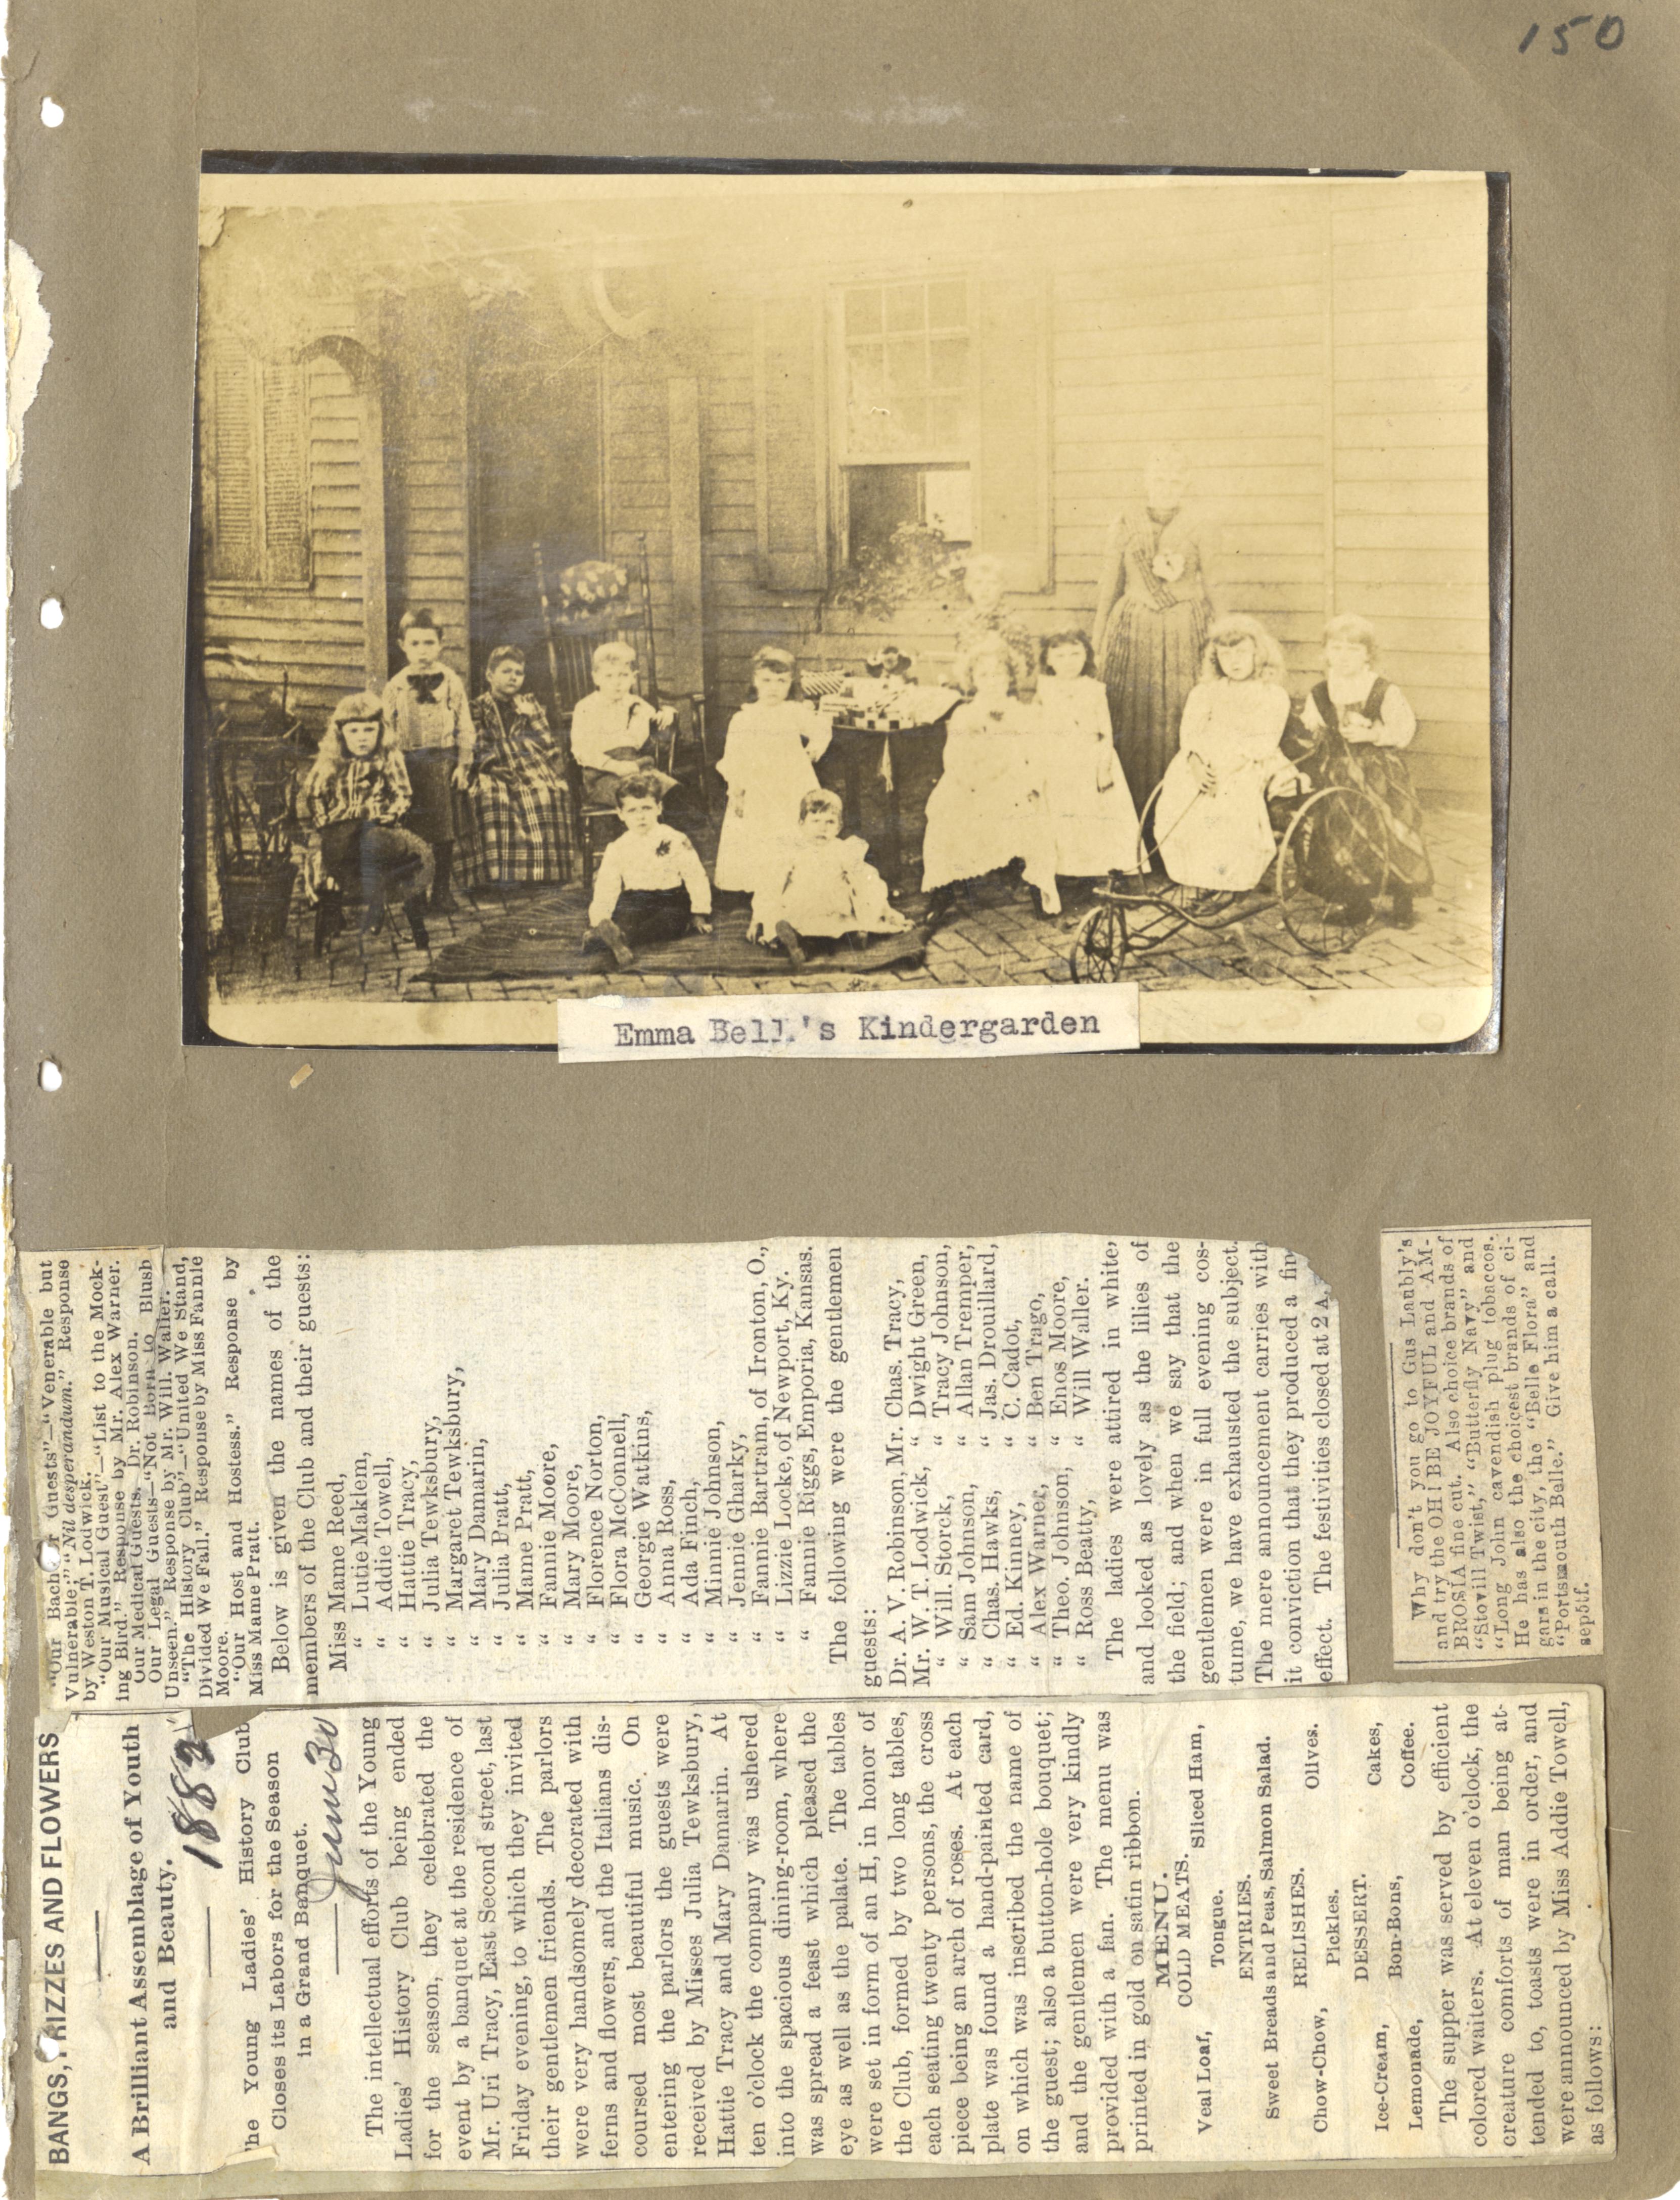 150
Emma Bell's Kindergarden
BANGS, FRIZZES AND FLOWERS
A Brilliant Assemblage of Youth
and Beauty.
1882
The Young Ladies' History Club
Closes its Labors for the Season
in a Grand Banquet.
June 30
The intellectual efforts of the Young
Ladies' History Club being ended
for the season, they celebrated the
event by a banquet at the residence of
Mr. Uri Tracy, East Second street, last
Friday evening, to which they invited
their gentlemen friends. The parlors
were very handsomely decorated with
ferns and flowers, and the Italians dis-
coursed most beautiful music. On
entering the parlors the guests were
received by Misses Julia Tewksbury,
Hattie Tracy and Mary Damarin. At
ten o'clock the company was ushered
into the spacious dining-room, where
was spread a feast which pleased the
eye as well as the palate. The tables
were set in form of an H, in honor of
the Club, formed by two long tables,
each seating twenty persons, the cross
piece being an arch of roses. At each
plate was found a hand-painted card,
on which was inscribed the name of
the guest; also a button-hole bouquet;
and the gentlemen were very kindly
provided with a fan. The menu was
printed in gold on satin ribbon.
MENU.
COLD MEATS.
Veal Loaf, Tongue. Sliced Ham,
ENTRIES.
Sweet Breads and Peas, Salmon Salad.
RELISHES.
Chow-Chow, Pickles. Olives.
DESSERT.
Ice-Cream, Bon-Bons, Cakes,
Lemonade, Coffee.
The supper was served by efficient
colored waiters. At eleven o'clock, the
creature comforts of man being at-
tended to, toasts were in order, and
were announced by Miss Addie Towell,
as follows:
"Our Bachelor Guests"—"Venerable but
Vulnerable;" "Nil desperandum." Response
by Weston T. Lodwick.
"Our Musical Guest"—"List to the Mock-
ing Bird." Response by Mr. Alex Warner.
Our Medical Guests. Dr. Robinson.
Our Legal Guests—"Not Born to Blush
Unseen." Response by Mr. Will. Waller.
"The History Club"—"United We Stand,
Divided We Fall." Response by Miss Fannie
Moore.
"Our Host and Hostess." Response by
Miss Mame Pratt.
Below is given the names of the
members of the Club and their guests:
Miss Mame Reed,
" Lutie Maklem,
" Addie Towell,
" Hattie Tracy,
" Julia Tewksbury,
" Margaret Tewksbury,
" Mary Damarin,
" Julia Pratt,
" Mame Pratt,
" Fannie Moore,
" Mary Moore,
" Florence Norton,
" Flora McConnell,
" Georgie Watkins,
" Anna Ross,
" Ada Finch,
" Minnie Johnson,
" Jennie Gharky,
" Fannie Bartram, of Ironton, O.,
" Lizzie Locke, of Newport, Ky.
" Fannie Riggs, Emporia, Kansas.
The following were the gentlemen
guests:
Dr. A. V. Robinson, Mr. Chas. Tracy,
Mr. W. T. Lodwick, " Dwight Green,
" Will. Storck, " Tracy Johnson,
" Sam Johnson, " Allan Tremper,
" Chas. Hawks, " Jas. Drouillard,
" Ed. Kinney, " C. Cadot,
" Alex Warner, " Ben Trago,
" Theo. Johnson, " Enos Moore,
" Ross Beatty, " Will Waller.
The ladies were attired in white,
and looked as lovely as the lilies of
the field; and when we say that the
gentlemen were in full evening cos-
tume, we have exhausted the subject.
The mere announcement carries with
it conviction that they produced a fine
effect. The festivities closed at 2 A.
Why don't you go to Gus Laubly's
and try the OH! BE JOYFUL and AM-
BROSIA fine cut. Also choice brands of
"Stovill Twist," "Butterfly Navy" and
"Long John cavendish plug tobaccos.
He has also the choicest brands of ci-
gars in the city, the "Belle Flora" and
"Portsmouth Belle." Give him a call.
sep5tf.